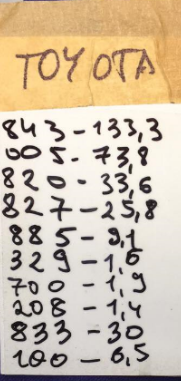 TOYOTA
843-133,3
005-73,8
820-33,6
827-25,8
885-9,1
329-1,6
700-1,9
208-1,4
833-30
100-6,5